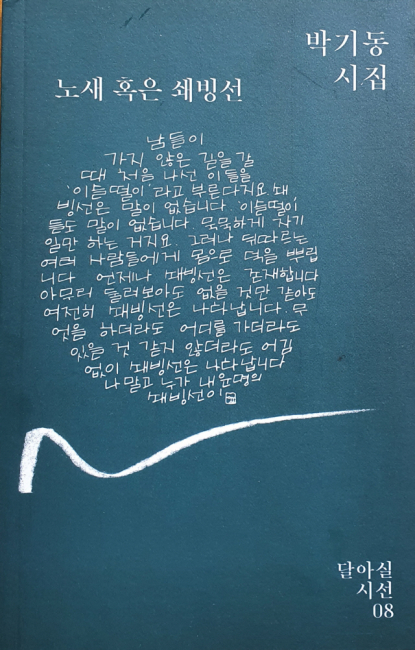 박기동
시집
노새 혹은 쇄빙선
남들이
가지 않은 길을 갈
때 처음 나선 이들을
'이들떨이'라고 부른다지요. 쇄
빙선은 말이 없습니다. 이들떨이
들도 말이 없습니다. 묵묵하게 자기
일만 하는 거지요. 그러나 뒤따르는
여러 사람들에게 몸으로 덕을 뿌립
니다. 언제나 쇄빙선은 존재합니다
아무리 둘러보아도 없을 것만 같아도
여전히 쇄빙선은 나타납니다. 무
엇을 하더라도 어디를 가더라도
있을 것 같지 않더라도 어김
없이 쇄빙선은 나타납니다
나 말고 누가 내 운명의
쇄빙선이
달아실
시선
08